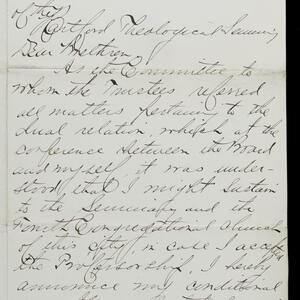 of the
Hartford Theological Seminary
Dear Brethren:
As the Committee to
whom the Trustees referred
all matters pertaining to the
dual relation, which, at the
conference between the Board
and myself, it was under-
stood, that I might sustain
to the Seminary and the
Fourth Congregational Church
of this city, in case I accepted
the Professorship, I hereby
announce my conditional